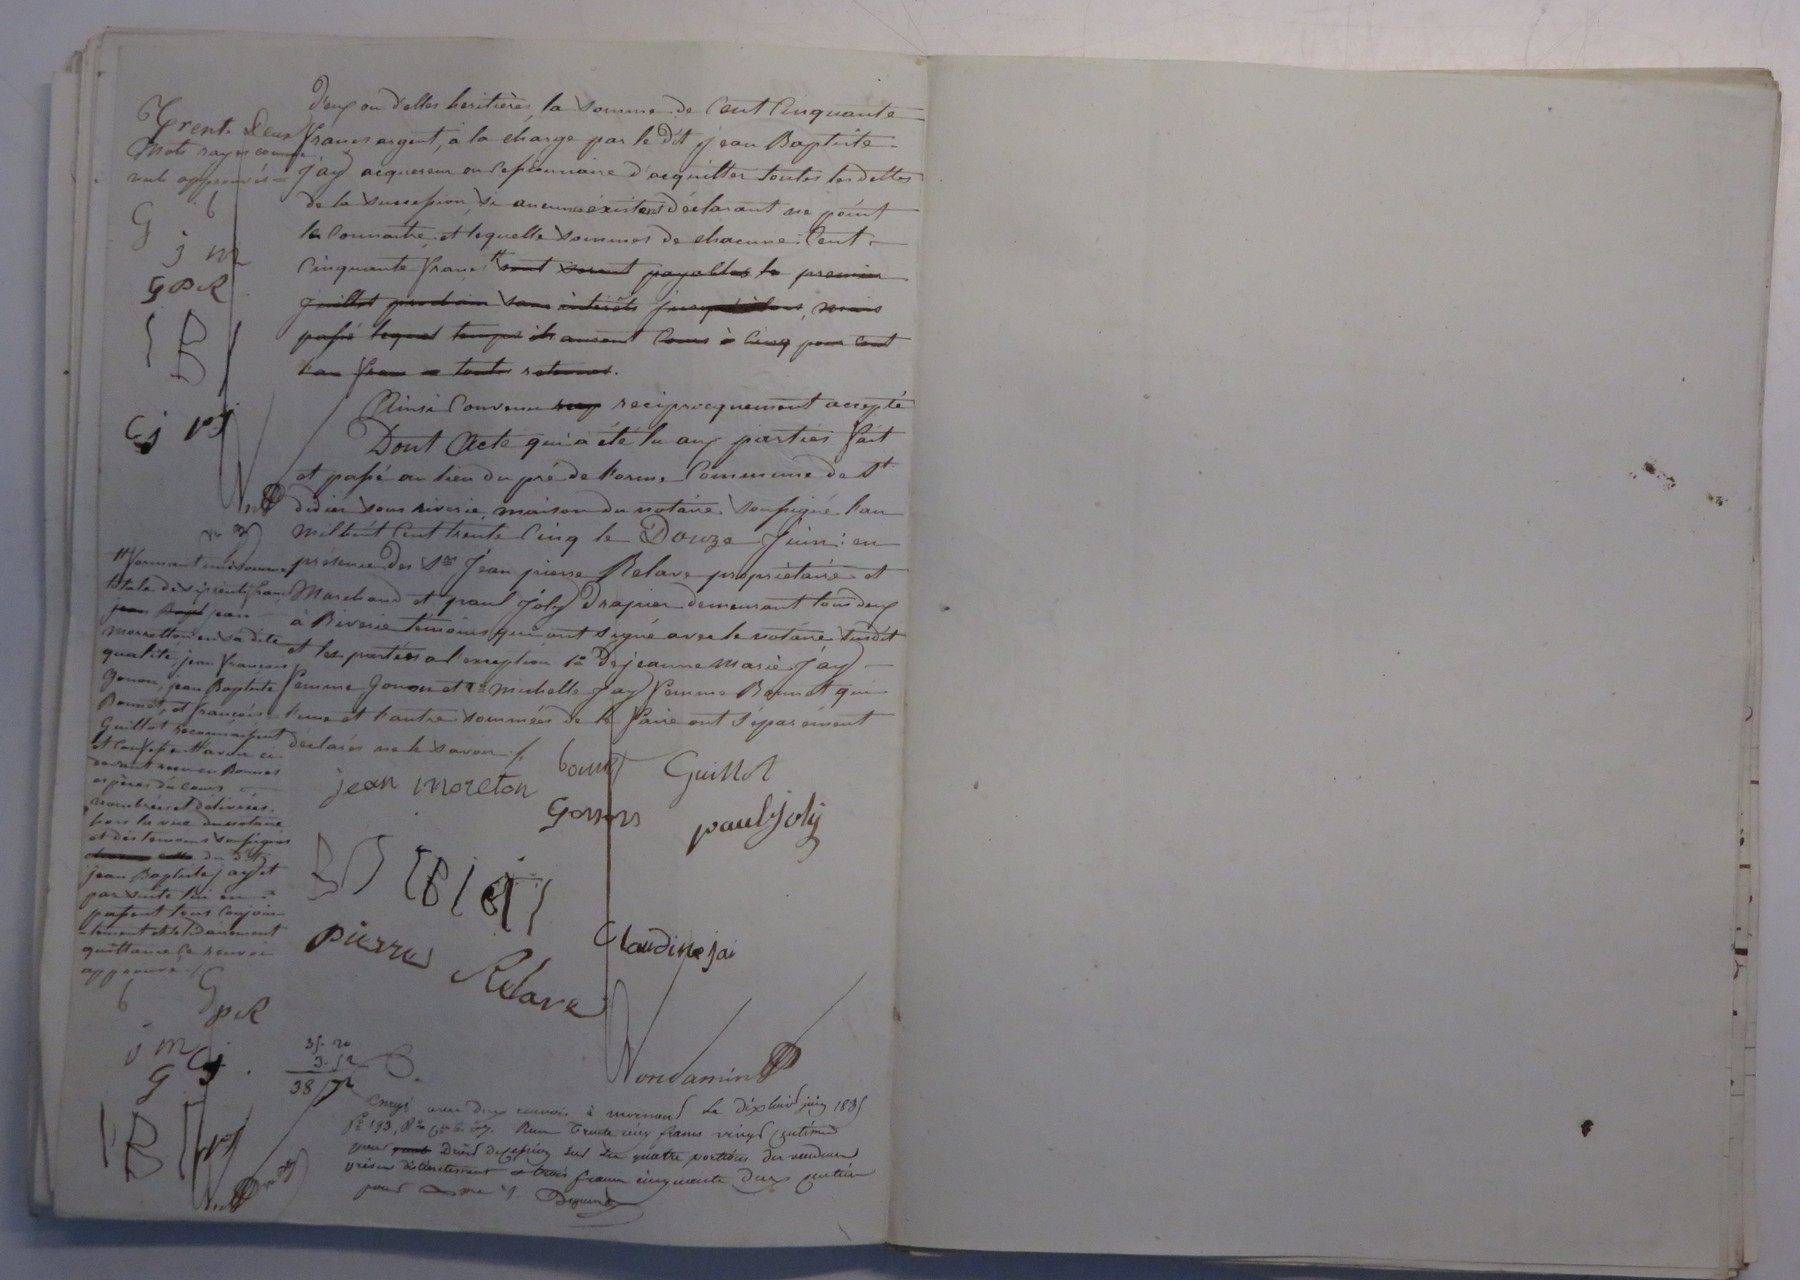 d'eux ou d'elles heritières, la somme de Cent Cinquante
francs argent, à la charge par le dit jean Baptiste
jay acquereur ou cessionnaire d'acquitter toutes les dettes
de la succession, si aucunes existent déclarant ne point
les connaître, et lequelle sommes de chacune Cent
Cinquante francs # sont seront payables le premier
juillet prochain sans intérêts jusqu'alors, mais
passé lequel temps ils auront Cours à Cinq pour Cent
l'an franc de toutes retenues.
Ainsi Convenu reciprocquement accepté
Dont Acte qui a été lu aux parties fait
et passé au lieu du pré de lorme Commune de St
didier sous riverie, maison du notaire soussigné l'an
mil huit Cent trente Cinq le Douze Juin : en
présence des Srs Jean pierre Relave propriétaire et
Marchand et paul Joly Drapier demeurant tous deux
à Riverie temoins qui ont signé avec le notaire susdit
et les parties a l'exception 1º De jeanne Marie Jay
femme Gonon et 2º michelle Jay femme Bonnet qui
l'une et l'autre sommées de le faire ont séparément
déclarés ne le savoir /.
jean moreton bonnet Guillot
Gonon paul joly
pierre Relave
Claudine jai
Trente Deux
Mots rayés comme
nuls approuvés =
G b
j m
G P R
B
Cj pj
# formant une somme
totale de six cents francs
jean Bapt jean
moretton en sa dite
qualité, jean françois
Gonon, jean Baptiste
Bonnet et françois
Guillot reconnaissent
et Confessent avoir ci
devant reçu en Bonnes
espèces du Cours
nombrées et délivrées
hors la vue du notaire
et des temoins soussignés
du dit
jean Baptiste jay et
par suite lui en
passent tous Conjoin
-tement et solidairement
quittance Ce renvoi
approuvé /.
b G p R
j m Cj
G
B pj
35. 20
3. 52
38 72
Enregé avec deux renvois à mornant le dix huit juin 1835
fº 193, Reçu trente cinq francs vingt centimes
pour Droit de cession sur les quatre portions des vendeurs
prises distinctement & trois francs cinquante deux centimes
pour